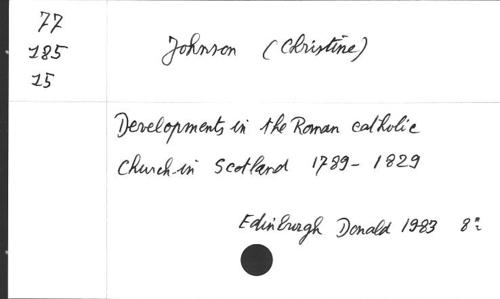 77
185
15
Johnson (Christine)
Developments in the Roman catholic
Church in Scotland 1789-1829
Edinburgh Donald 1983 8º